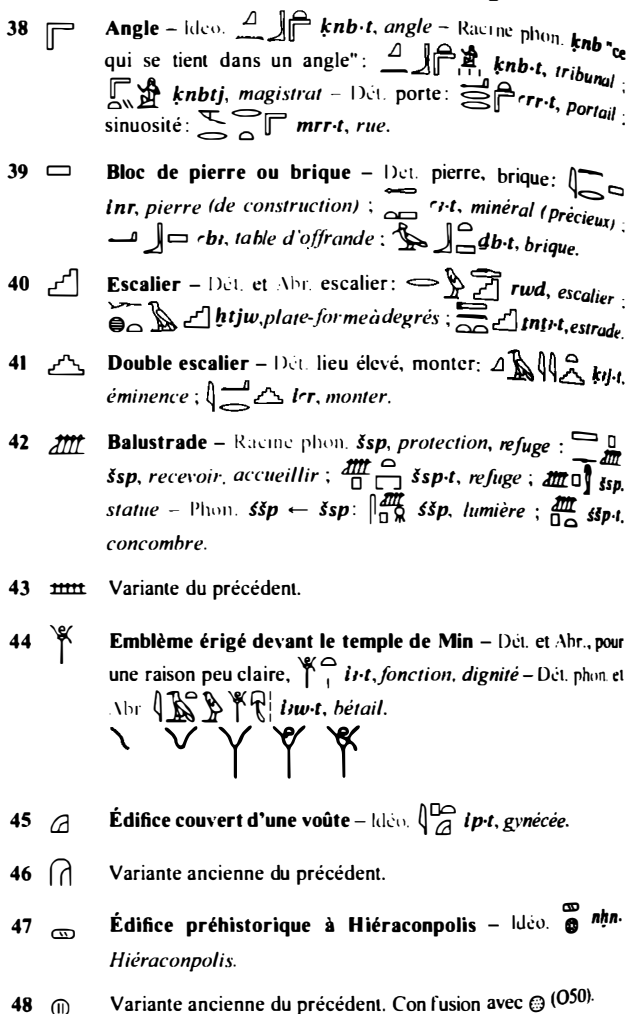 38 Angle – Idéo. ḳnb·t, angle – Racine phon. ḳnb "ce
qui se tient dans un angle": ḳnb·t, tribunal ;
ḳnbtj, magistrat – Dét. porte: ꜥrr·t, portail ;
sinuosité: mrr·t, rue.
39 Bloc de pierre ou brique – Dét. pierre, brique:
inr, pierre (de construction) ; ꜥꜣ·t, minéral (précieux) ;
ꜥbꜣ, table d'offrande ; db·t, brique.
40 Escalier – Dét. et Abr. escalier: rwd, escalier ;
ḫtjw, plate-forme à degrés ; tntꜣ·t, estrade.
41 Double escalier – Dét. lieu élevé, monter: ḳꜣj·t,
éminence ; iꜥr, monter.
42 Balustrade – Racine phon. šsp, protection, refuge :
šsp, recevoir, accueillir ; šsp·t, refuge ; šsp,
statue – Phon. śšp ← šsp: śšp, lumière ; śšp·t,
concombre.
43 Variante du précédent.
44 Emblème érigé devant le temple de Min – Dét. et Abr., pour
une raison peu claire, iꜣ·t, fonction, dignité – Dét. phon. et
Abr iꜣw·t, bétail.
45 Édifice couvert d'une voûte – Idéo. ip·t, gynécée.
46 Variante ancienne du précédent.
47 Édifice préhistorique à Hiéraconpolis – Idéo. nḫn.
Hiéraconpolis.
48 Variante ancienne du précédent. Confusion avec (O50).